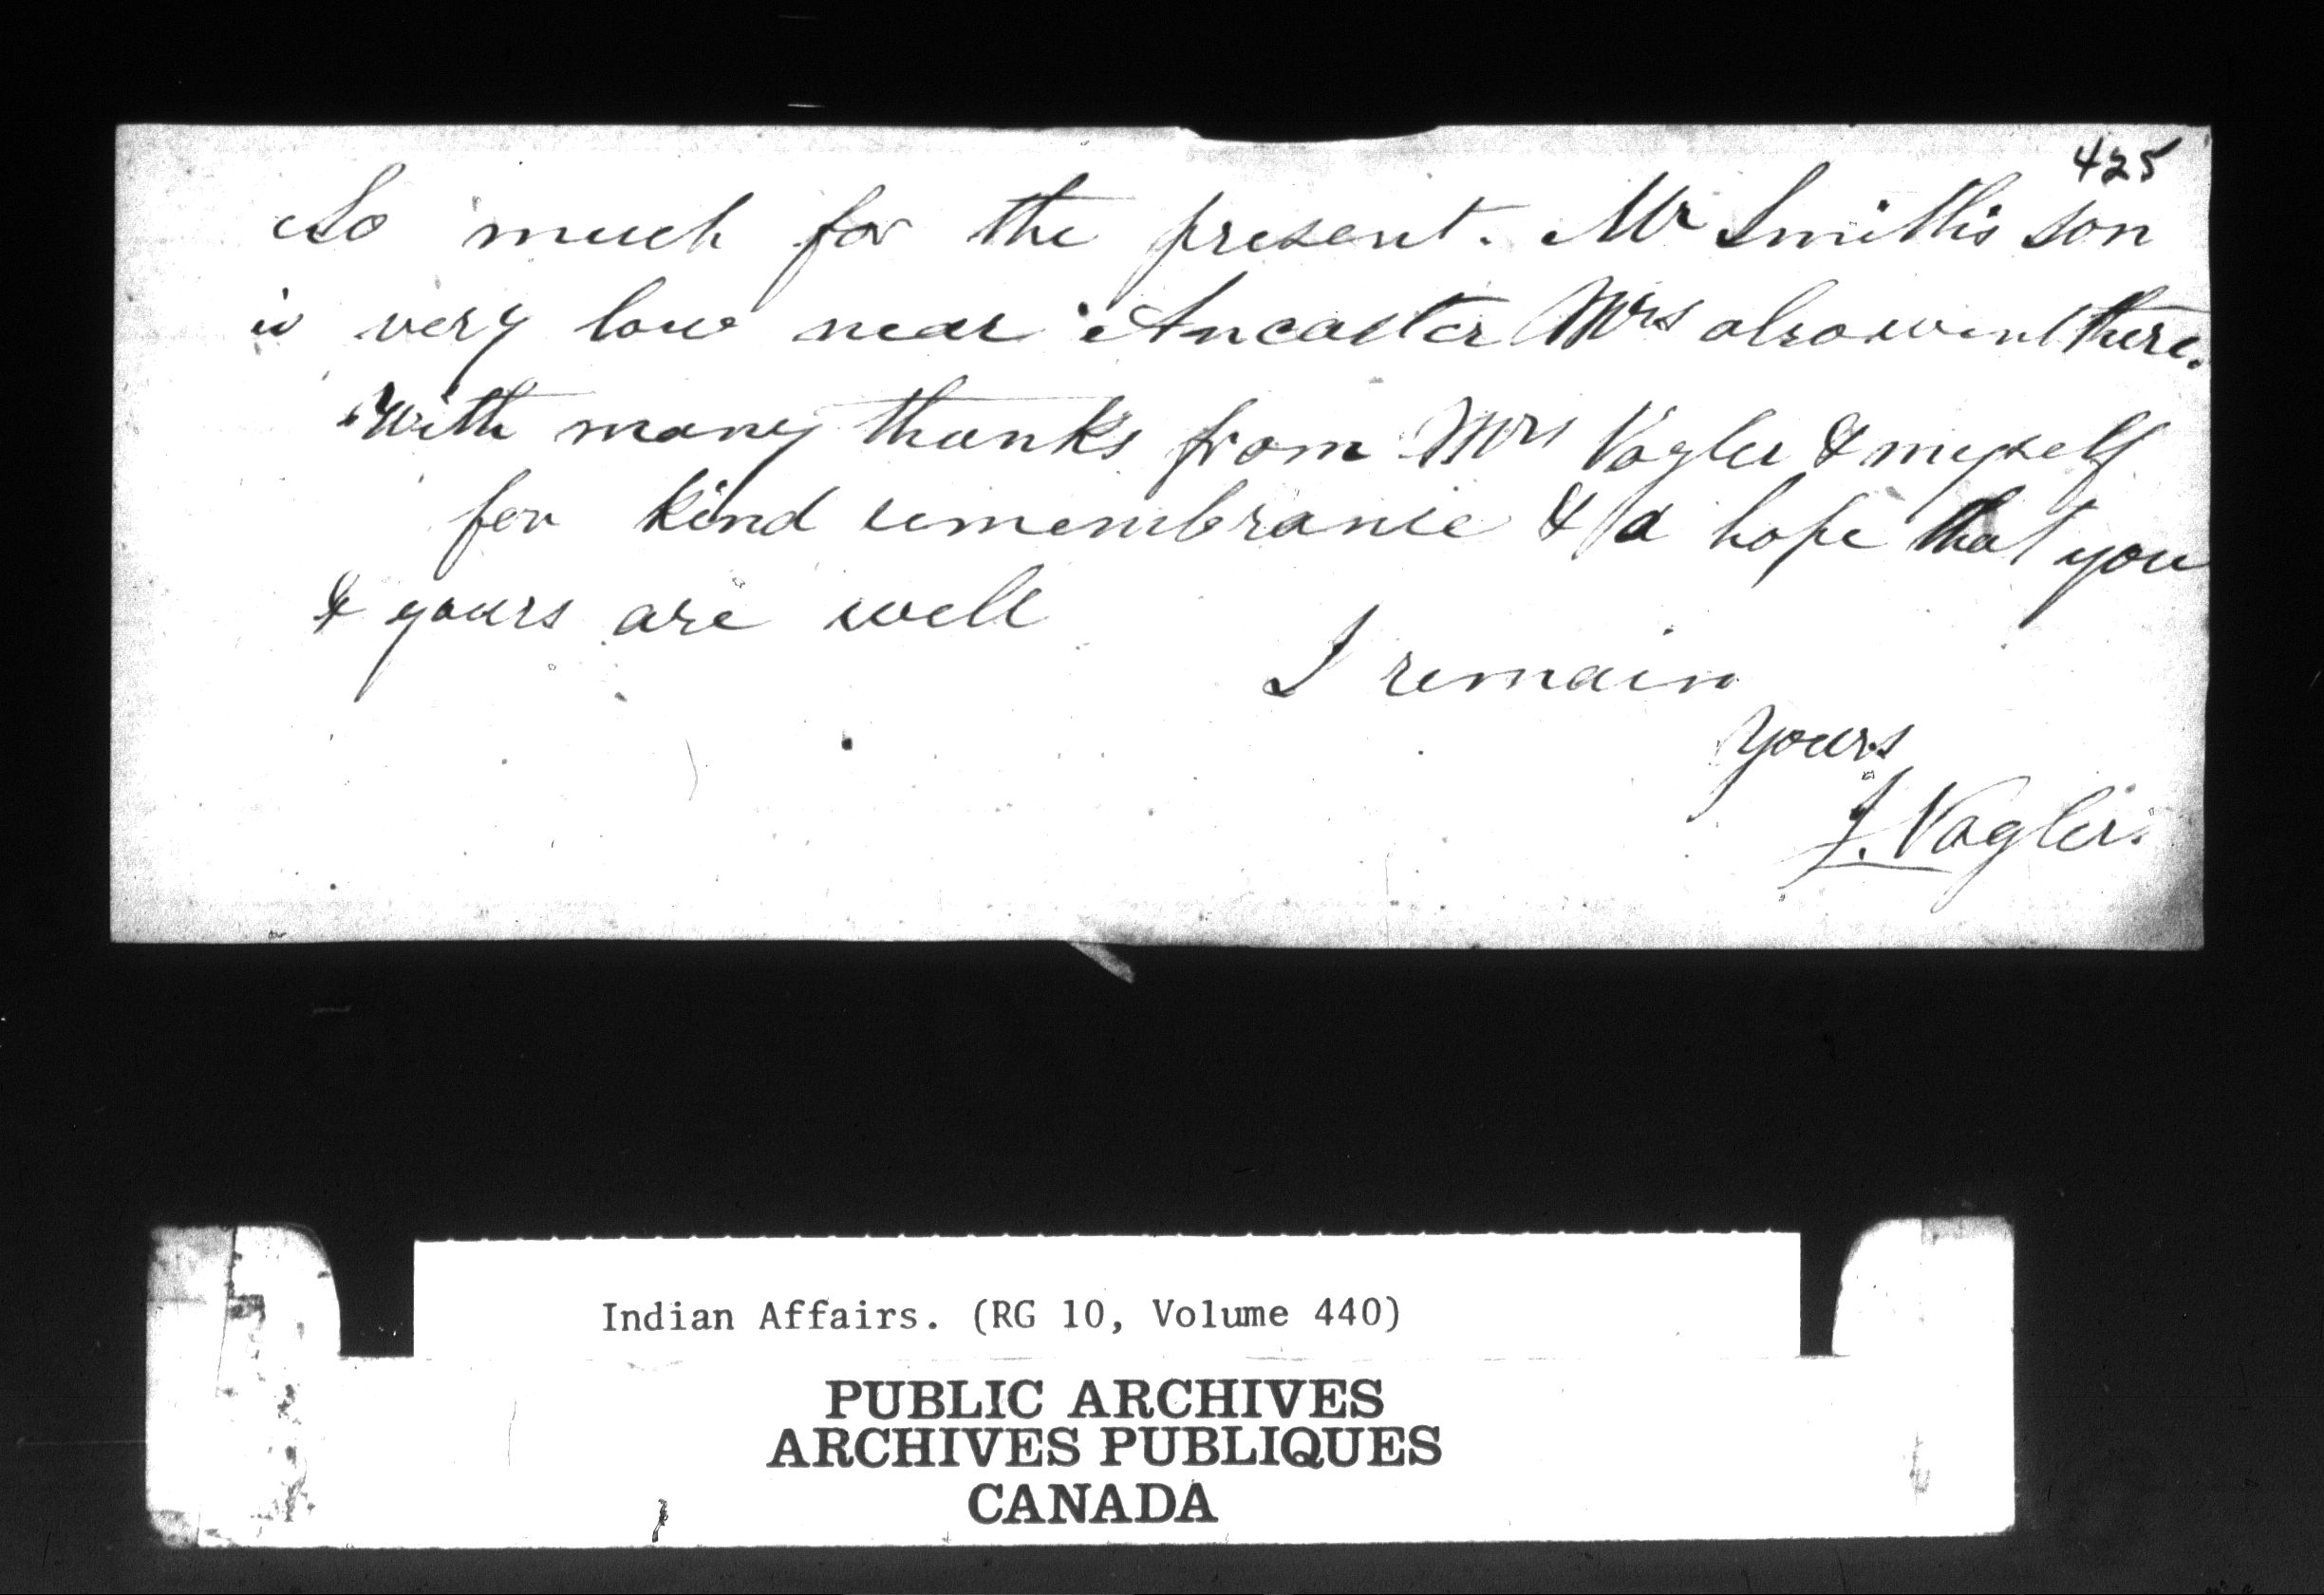 425
So much for the present. Mr Smith's son
is very low near Ancaster Mrs also went there.
With many thanks from Mrs Vogler & myself
for kind remembrance & a hope that you
& yours are well
I remain
yours
J. Vogler.
Indian Affairs. (RG 10, Volume 440)
PUBLIC ARCHIVES
ARCHIVES PUBLIQUES
CANADA